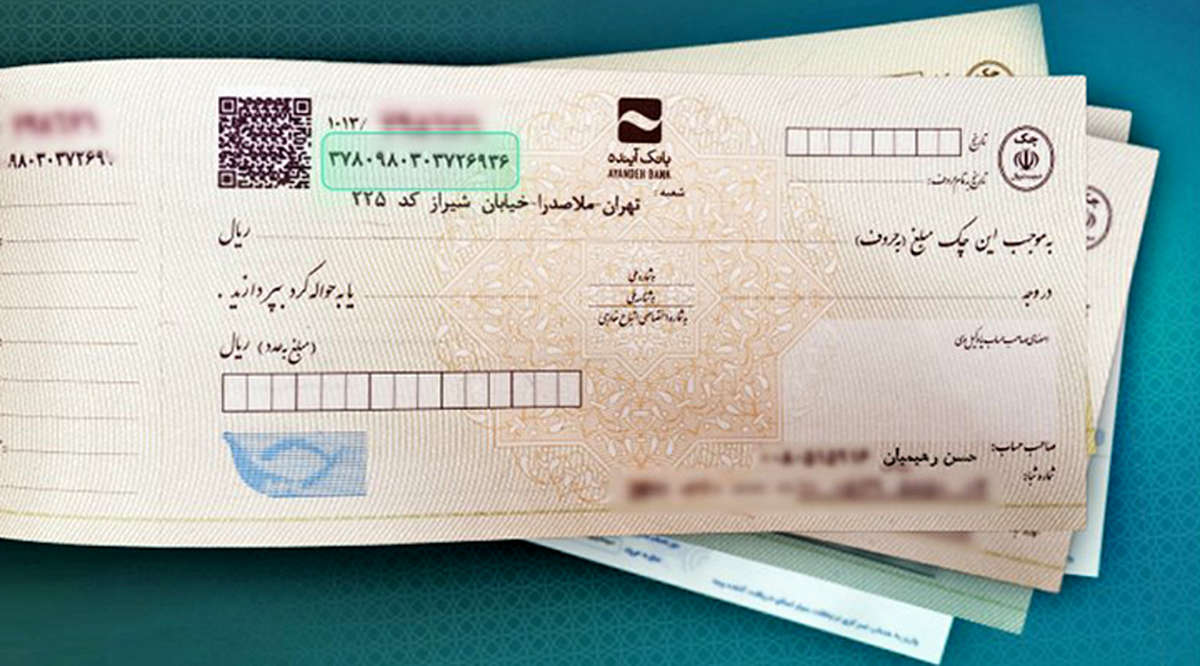 ۹۸۰۳۰۳۷۲۶۹
۱۰۱۳/
۳۷۸۰۹۸۰۳۰۳۷۲۶۹۳۶
بانک آینده
AYANDEH BANK
شعبه:
تهران-ملاصدرا-خیابان شیراز کد ۲۲۵
چک
تاریخ
تاریخ به تمام حروف:
به موجب این چک مبلغ (به حروف) ریال
در وجه یا به حواله کرد بپردازید.
به شماره ملی
به شناسه ملی
به شماره اختصاصی اتباع خارجی
(مبلغ به عدد) ریال
امضای صاحب حساب یا وکیل وی
صاحب حساب: حسن رهیمیان
شماره شبا: